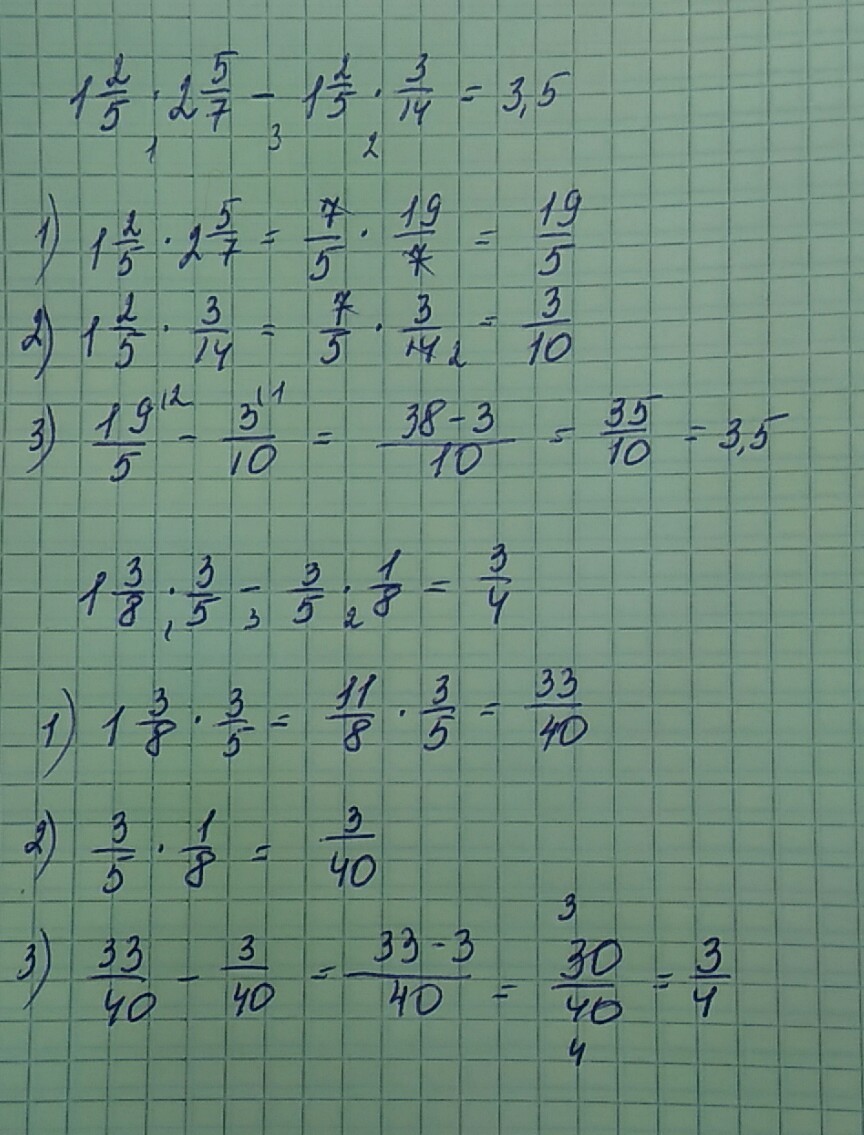 1 2/5 · 2 5/7 - 1 2/5 · 3/14 = 3,5
1 3 2
1) 1 2/5 · 2 5/7 = 7/5 · 19/7 = 19/5
2) 1 2/5 · 3/14 = 7/5 · 3/14 2 = 3/10
3) 19\2/5 - 3\1/10 = 38-3/10 = 35/10 = 3,5
1 3/8 · 3/5 - 3/5 · 1/8 = 3/4
1 3 2
1) 1 3/8 · 3/5 = 11/8 · 3/5 = 33/40
2) 3/5 · 1/8 = 3/40
3
3) 33/40 - 3/40 = 33-3/40 = 30/40 = 3/4
4